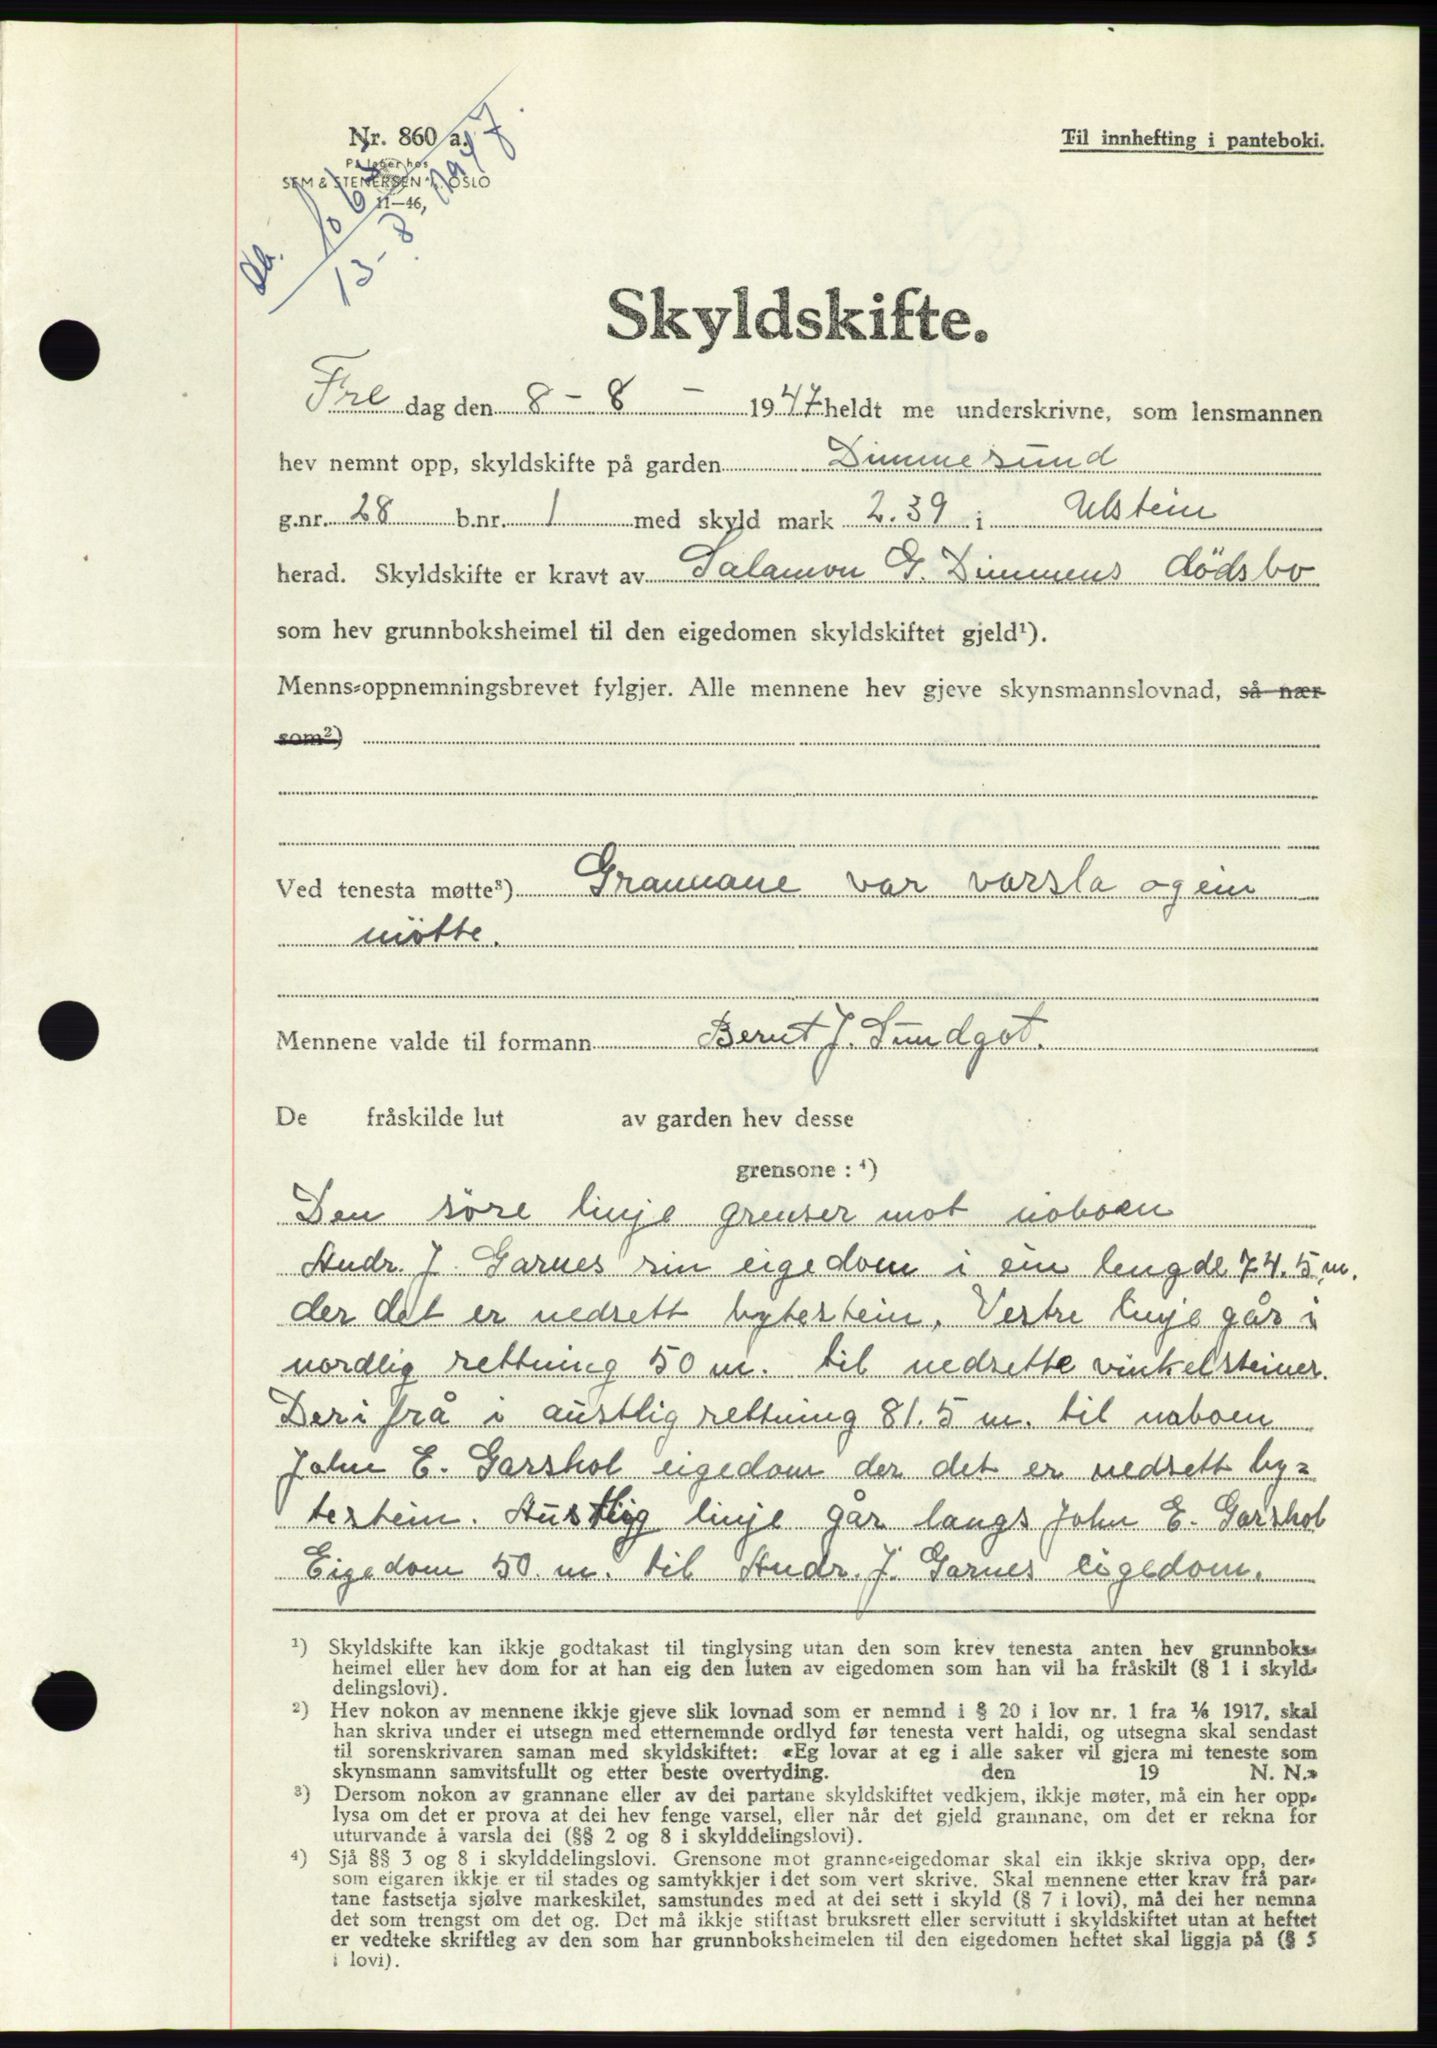 Nr. 860 a.
På lager hos
SEM & STENERSEN A/S, OSLO
11—46.
Til innhefting i panteboki.
Db.
13-8-1947.
Skyldskifte.
Fredag den 8 - 8 - 1947 heldt me underskrivne, som lensmannen
hev nemnt opp, skyldskifte på garden Dimmesund
g.nr. 28 b.nr. 1 med skyld mark 2.39 i Ulstein
herad. Skyldskifte er kravt av Salamon G. Dimmens dödsbo
som hev grunnboksheimel til den eigedomen skyldskiftet gjeld¹).
Menns-oppnemningsbrevet fylgjer. Alle mennene hev gjeve skynsmannslovnad, så nær
som²)
Ved tenesta møtte³) Grannane var varsla og ein
mötte.
Mennene valde til formann Bernt J. Sundgot.
De fråskilde lut av garden hev desse
grensone : ⁴)
Den söre linje grenser mot naboen
Andr. J. Garnes sin eigedom i ein lengde 74.5 m.
der det er nedsett bytestein. Vestre linje går i
nordlig rettning 50 m. til nedsette vinkelsteiner.
Deri frå i austlig rettning 81.5 m. til naboen
John E. Garshol eigedom der det er nedsett by=
testein. Austlig linje går langs John E. Garshol
Eigedom 50. m. til Andr. J. Garnes eigedom.
¹) Skyldskifte kan ikkje godtakast til tinglysing utan den som krev tenesta anten hev grunnboks-
heimel eller hev dom for at han eig den luten av eigedomen som han vil ha fråskilt (§ 1 i skyld-
delingslovi).
²) Hev nokon av mennene ikkje gjeve slik lovnad som er nemnd i § 20 i lov nr. 1 fra 1/6 1917, skal
han skriva under ei utsegn med etternemnde ordlyd før tenesta vert haldi, og utsegna skal sendast
til sorenskrivaren saman med skyldskiftet: «Eg lovar at eg i alle saker vil gjera mi teneste som
skynsmann samvitsfullt og etter beste overtyding. den 19 N. N.»
³) Dersom nokon av grannane eller av dei partane skyldskiftet vedkjem, ikkje møter, må ein her opp-
lysa om det er prova at dei hev fenge varsel, eller når det gjeld grannane, om det er rekna for
uturvande å varsla dei (§§ 2 og 8 i skylddelingslovi).
⁴) Sjå §§ 3 og 8 i skylddelingslovi. Grensone mot granne-eigedomar skal ein ikkje skriva opp, der-
som eigaren ikkje er til stades og samtykkjer i det som vert skrive. Skal mennene etter krav frå par-
tane fastsetja sjølve markeskilet, samstundes med at dei sett i skyld (§ 7 i lovi), må dei her nemna
det som trengst om det og. Det må ikkje stiftast bruksrett eller servitutt i skyldskiftet utan at heftet
er vedteke skriftleg av den som har grunnboksheimelen til den eigedomen heftet skal liggja på (§ 5
i lovi).